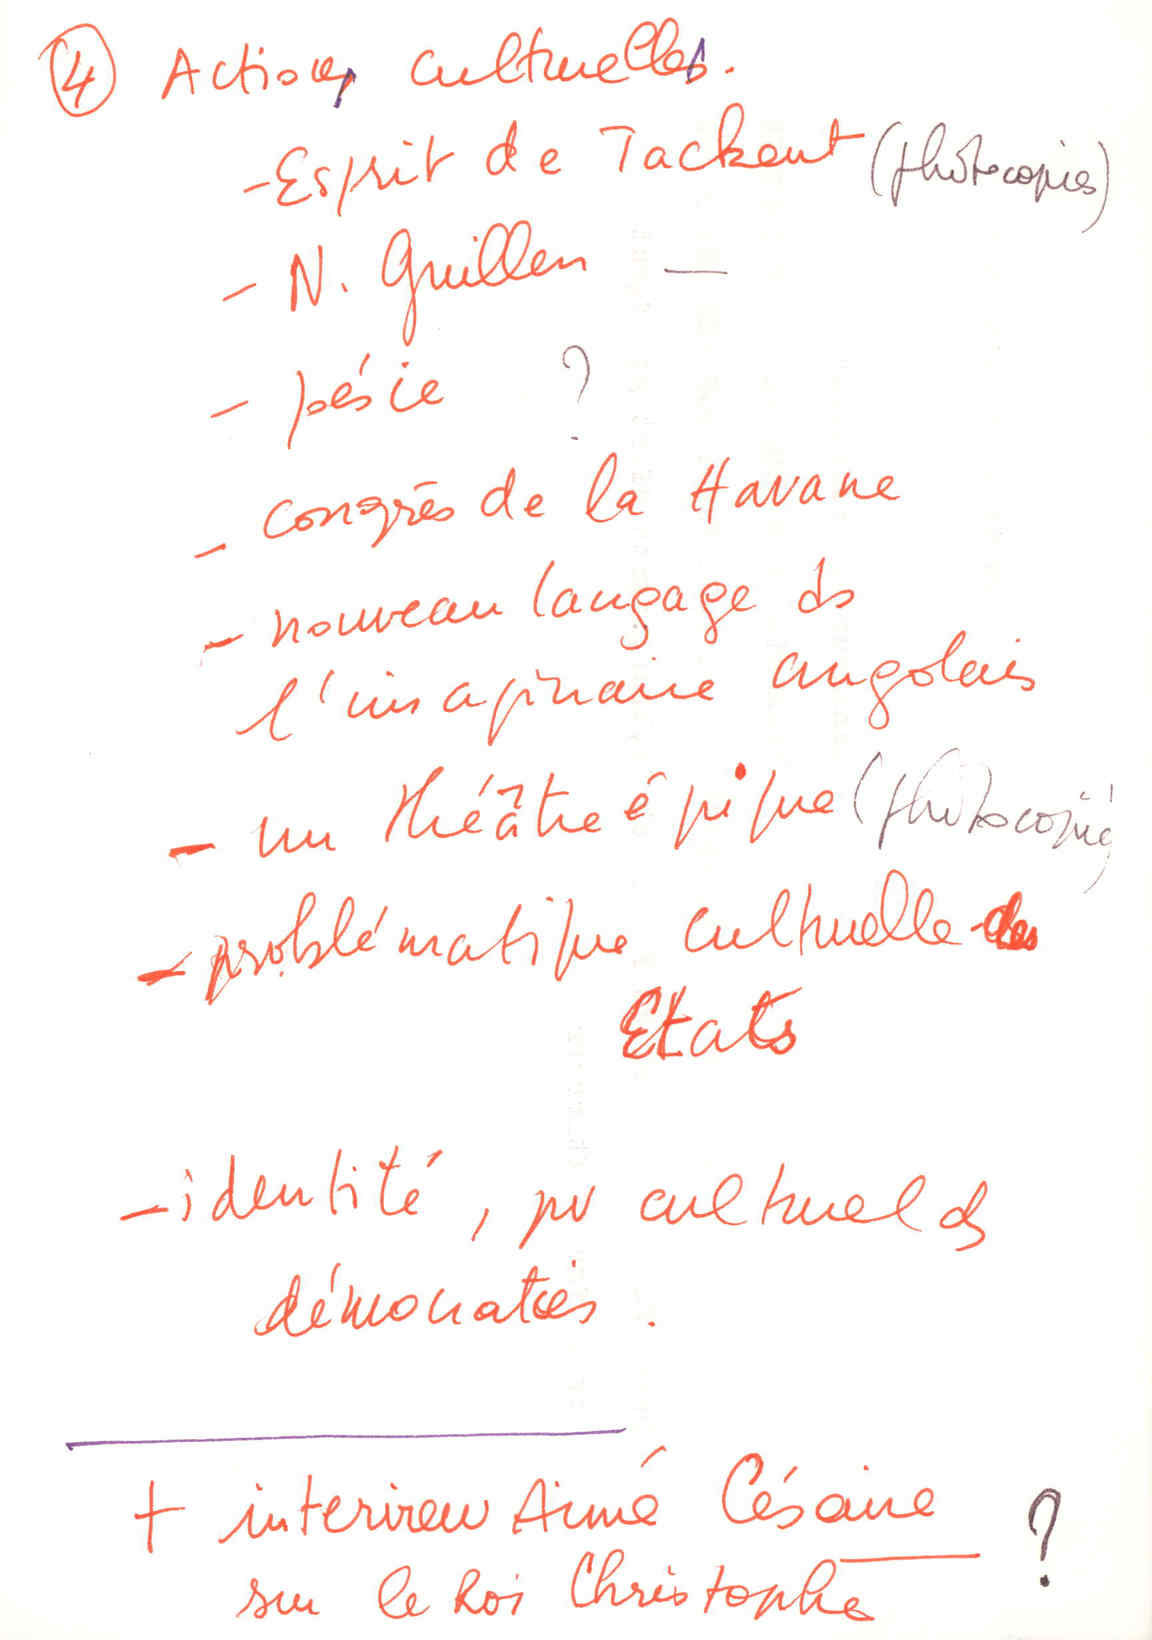 ④ Actions culturelles.
- Esprit de Tackent (photocopies)
- N. Guillen —
- poésie ?
- congrès de la Havane
- nouveau langage ds
l'imaginaire angolais
- un théâtre épique (photocopié)
- problématique culturelle des
Etats
- identité, pv culturel ds
démocraties.
+ interview Aimé Césaire ?
sur le Roi Christophe